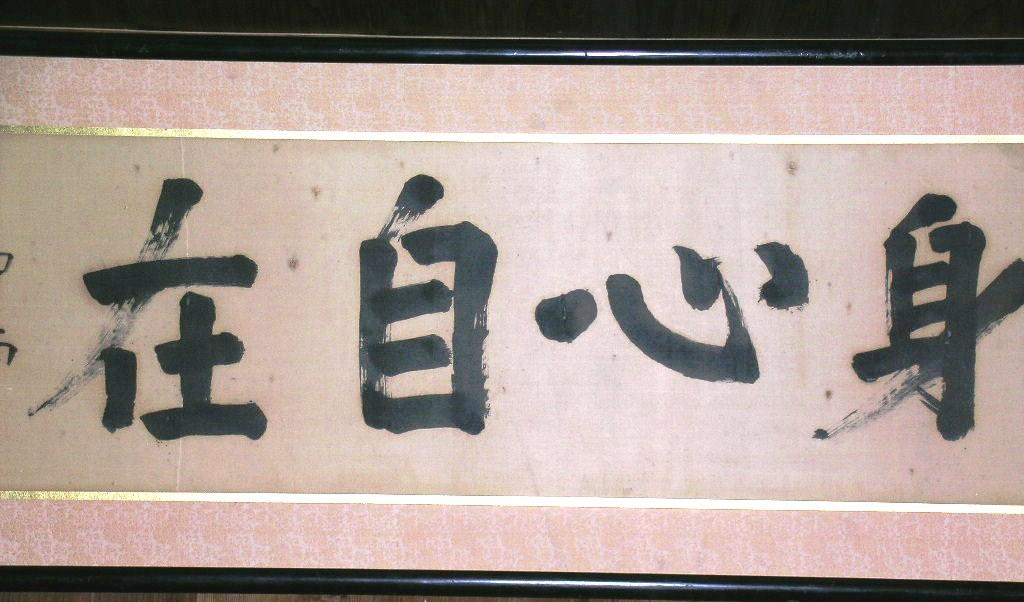 身心自在